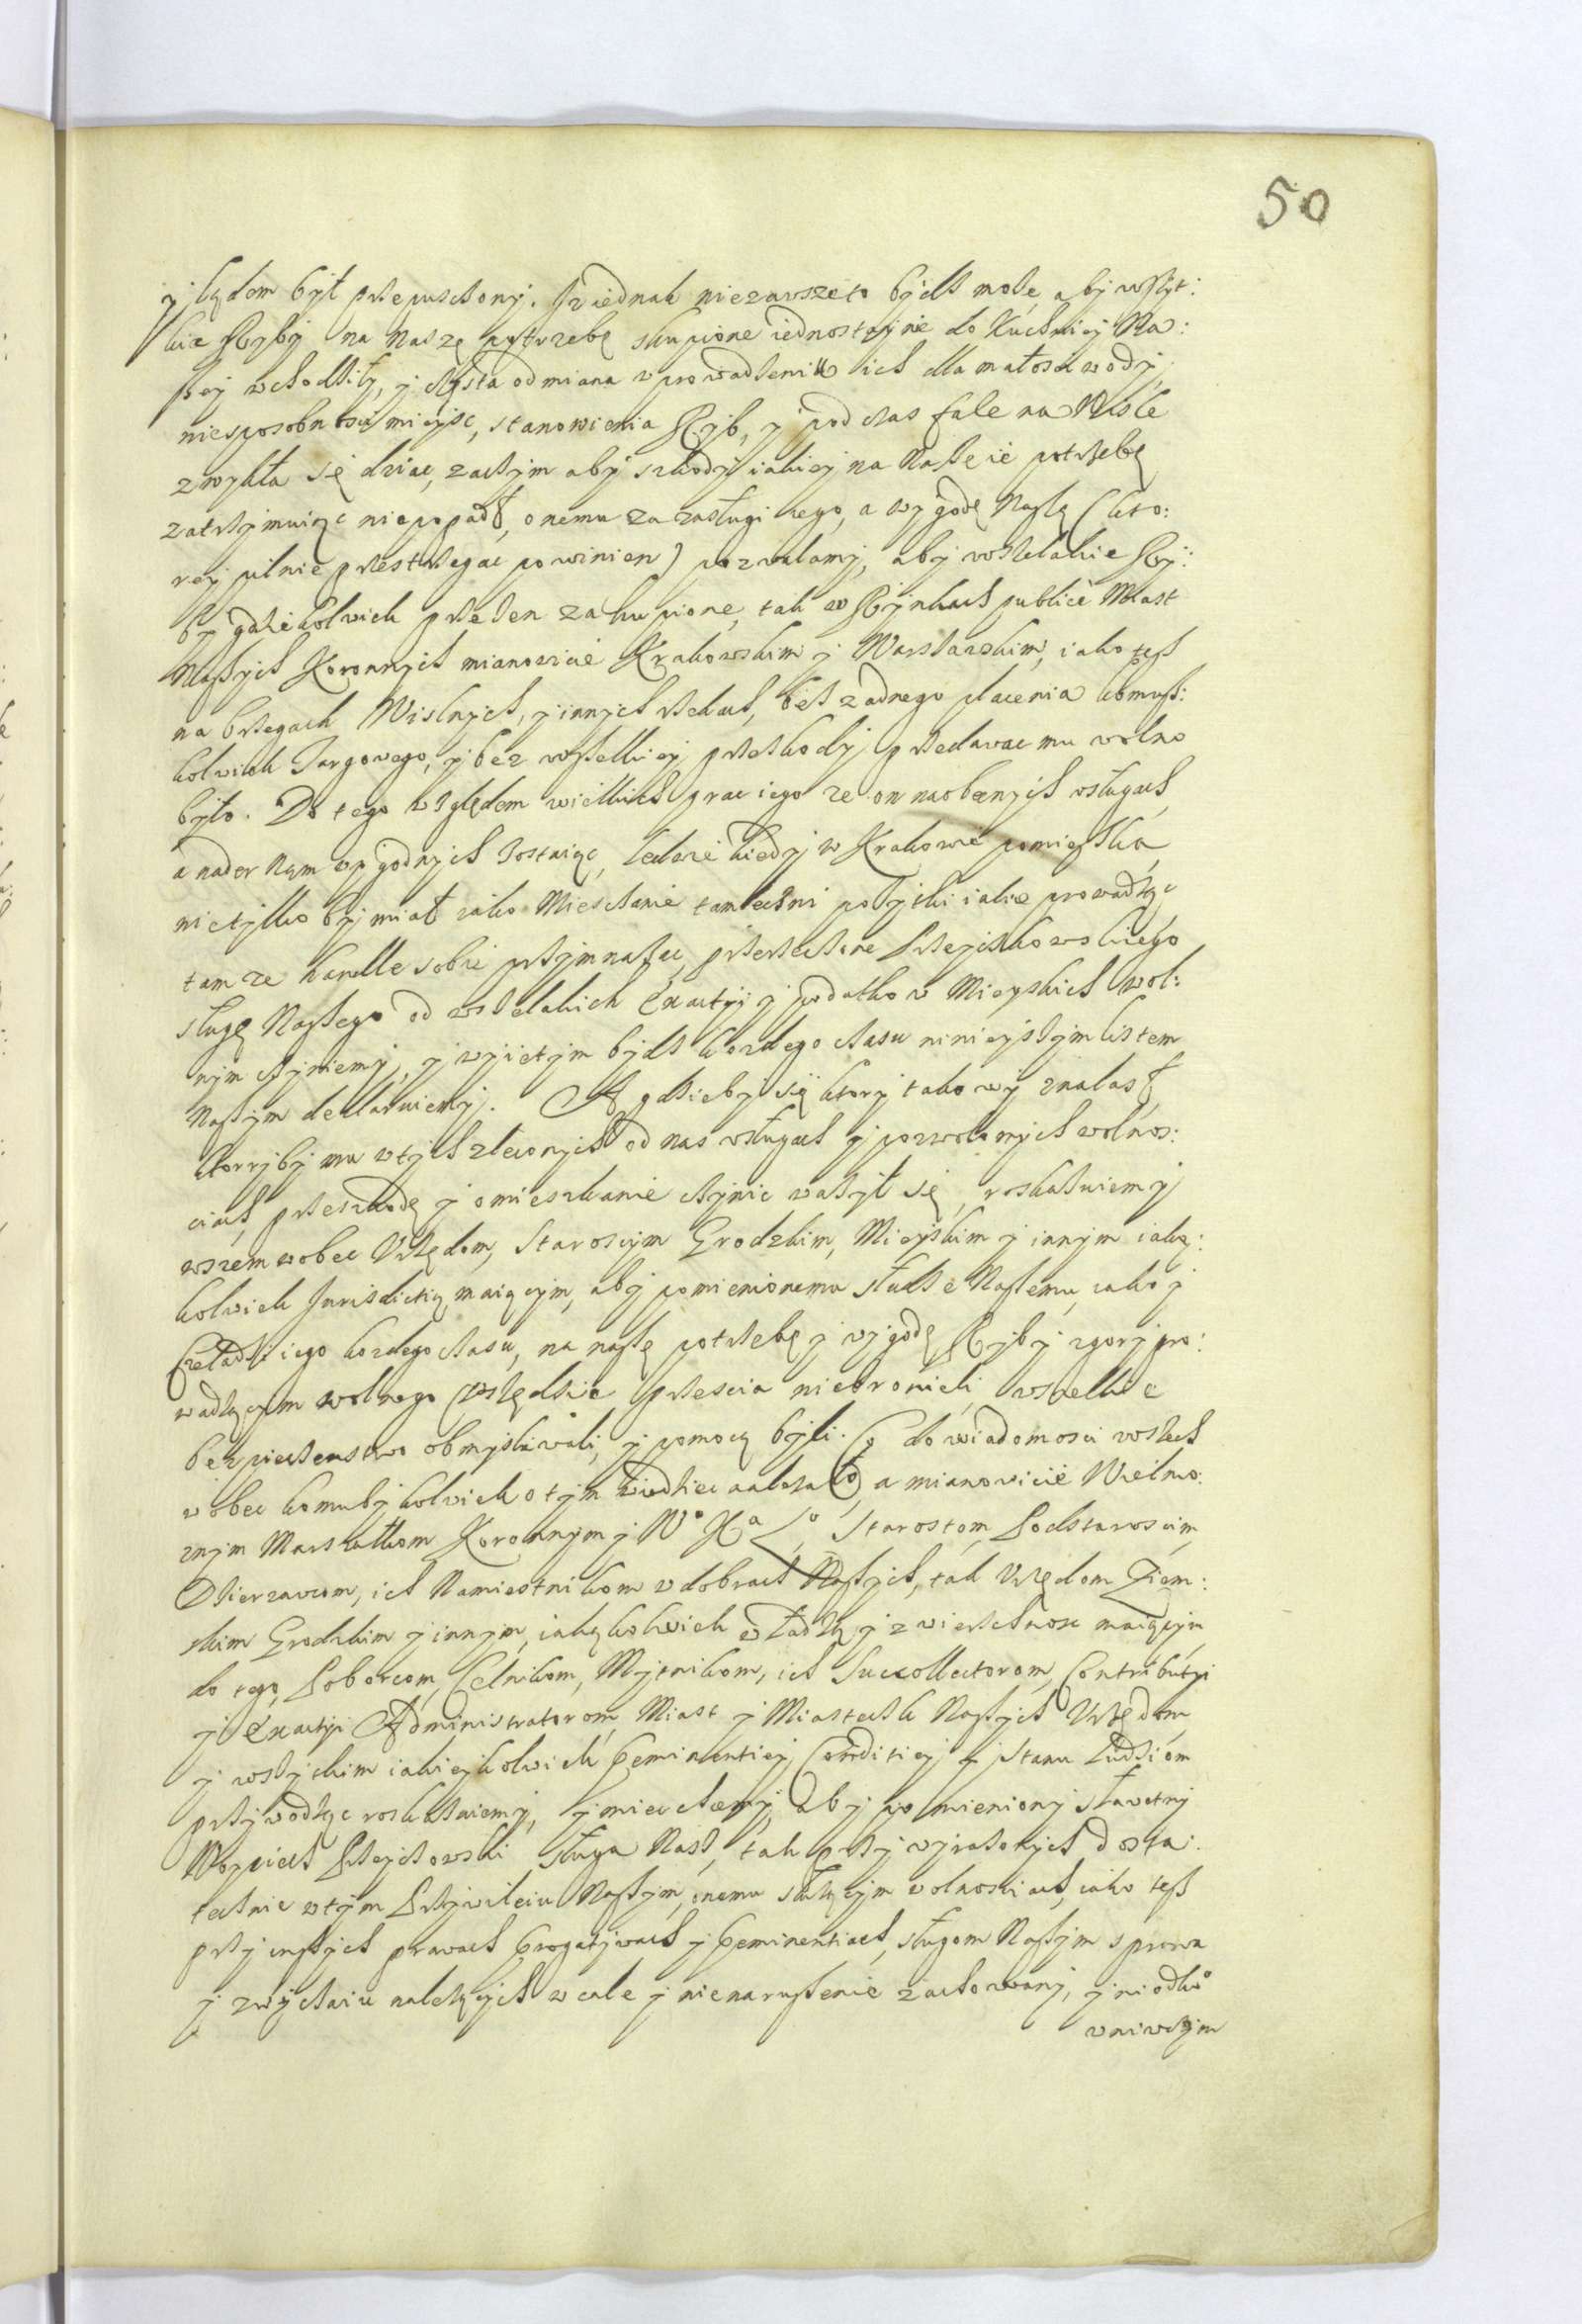 50
y lądem był przepuszczony. Iz iednak niezawsze to bydz moze, aby wszyt:
kie Ryby na Naszę potrzebę skupione iednostaynie do Kuchniey Na:
szey wchodziły, y częsta odmiana w prowadzeniu ich dla małosci wody,
niesposobnosci mieysc, stanowienia Ryb, y pod czas fale na Wisle
zwykła się dziac, zaczym aby szkody iakiey na Naszę ie potrzebę
zatrzymuiąc niepopadł, onemu za zasługi iego, a wygodę Naszę (kto:
rey pilnie przestrzegac powinien) pozwalamy, aby wszelakie Ry:
by gdziekolwiek przezen zakupione, tak w Rynkach publice Miast
Naszych Koronnych mianowicie Krakowskim y Warszawskim, iako tesz
na brzegach Wislnych, y innych rzekach, bez zadnego płacenia komusz:
kolwiek Targowego, y bez wszelkiey przeszkody przedawac mu wolno
było. Do tego względem wielkich prac iego ze on na obecnych usługach
a nader Nam wygodnych zostaiąc, ledwie kiedy w Krakowie pomieszka,
nietylko by miał iako Mieszczanie tameczni pozytki iakie prowadząc
tamze handle sobie przymnazac, przerzeczone Przeyczkowskiego
sługę Naszego od wszelakich Exactyi y podatkow Mieyskich wol:
nym czyniemy, y wyiętym bydz kozdego czasu ninieyszym listem
Naszym declaruiemy. A gdzieby się ktory takowy znalasł
ktorryby mu w tych zleconych od nas usługach y pozwolonych wolnos:
ciach, przeszkodę y omieszkanie czynic wazył się, roskazuiemy
wszem wobec Urzędom, Starosciym Grodzkim, Mieyskim y innym iaką:
kolwiek Jurisdictią maiącym, aby pomienionemu słudze Naszemu, iako y
Czeladzi iego kozdego czasu, na naszę potrzebę y wygodę Ryby zgory pro:
wadzącym wolnego wszędzie przescia niebronieli, wszelkie
bezpieczenstwo obmysliwali, y pomocą byli. Co do wiadomosci wszech
wobec komubykolwiek o tym wiedziec nalezało, a mianowicie Wielmo:
znym Marszałkom Koronnym y Wo Xa Lo, Starostom, Podstaroscim,
Dzierzawcom, ich Namiestnikom w dobrach Naszych, tak Urzędom Ziem:
skim Grodzkim y innym, iakąkolwiek władzą y zwierzchnosc maiącym
do tego, Poborcom, Celnikom, Mytnikom, ich Succollectorom, Contributyi
y Exactyi Administratorom, Miast y Miasteczk Naszych Urzędom,
y wszytkim iakieykolwiek Preminentiey Conditiey y Stanu Ludziom
przywodząc roskazuiemy, y miec chcemy, aby pomieniony sławetny
Woyciech Przeyczkowski Sługa Nasz, tak przy wyrazonych dosta:
tecznie w tym Przywileiu Naszym, onemu słuzącym wolnosciach, iako tesz
przy inszych prawach Prerogatywach y Preminentiach, sługom Naszym s prawa
y zwyczaiu nalezących w cale y nienaruszenie zachowany, y ni odko
wniwczym